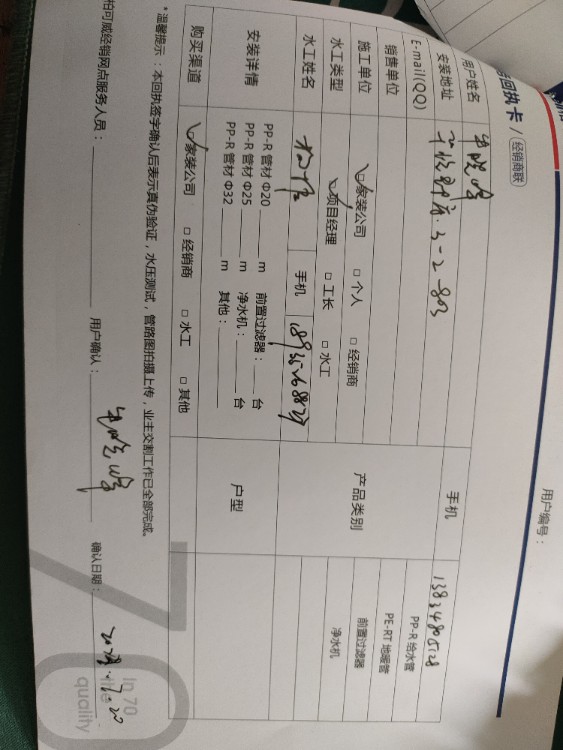 回执卡 / 经销商联
用户编号：
用户姓名 牛晓峰 手机 13834805128
安装地址 3-2 803
E-mail(QQ) 产品类别 PP-R 给水管
销售单位 PE-RT 地暖管
施工单位 ☑家装公司 □ 个人 □ 经销商 前置过滤器
水工类型 ☑项目经理 □ 工长 □ 水工 净水机
水工姓名 手机
安装详情 PP-R 管材 Φ20 ____ m 前置过滤器：____ 台 户型
PP-R 管材 Φ25 ____ m 净水机：____ 台
PP-R 管材 Φ32 ____ m 其他：____
购买渠道 ☑家装公司 □ 经销商 □ 水工 □ 其他
*温馨提示：本回执签字确认后表示真伪验证，水压测试，管路图拍摄上传，业主交割工作已全部完成。
柏可威经销网点服务人员： 用户确认：牛晓峰 确认日期：
70
in 70
quality